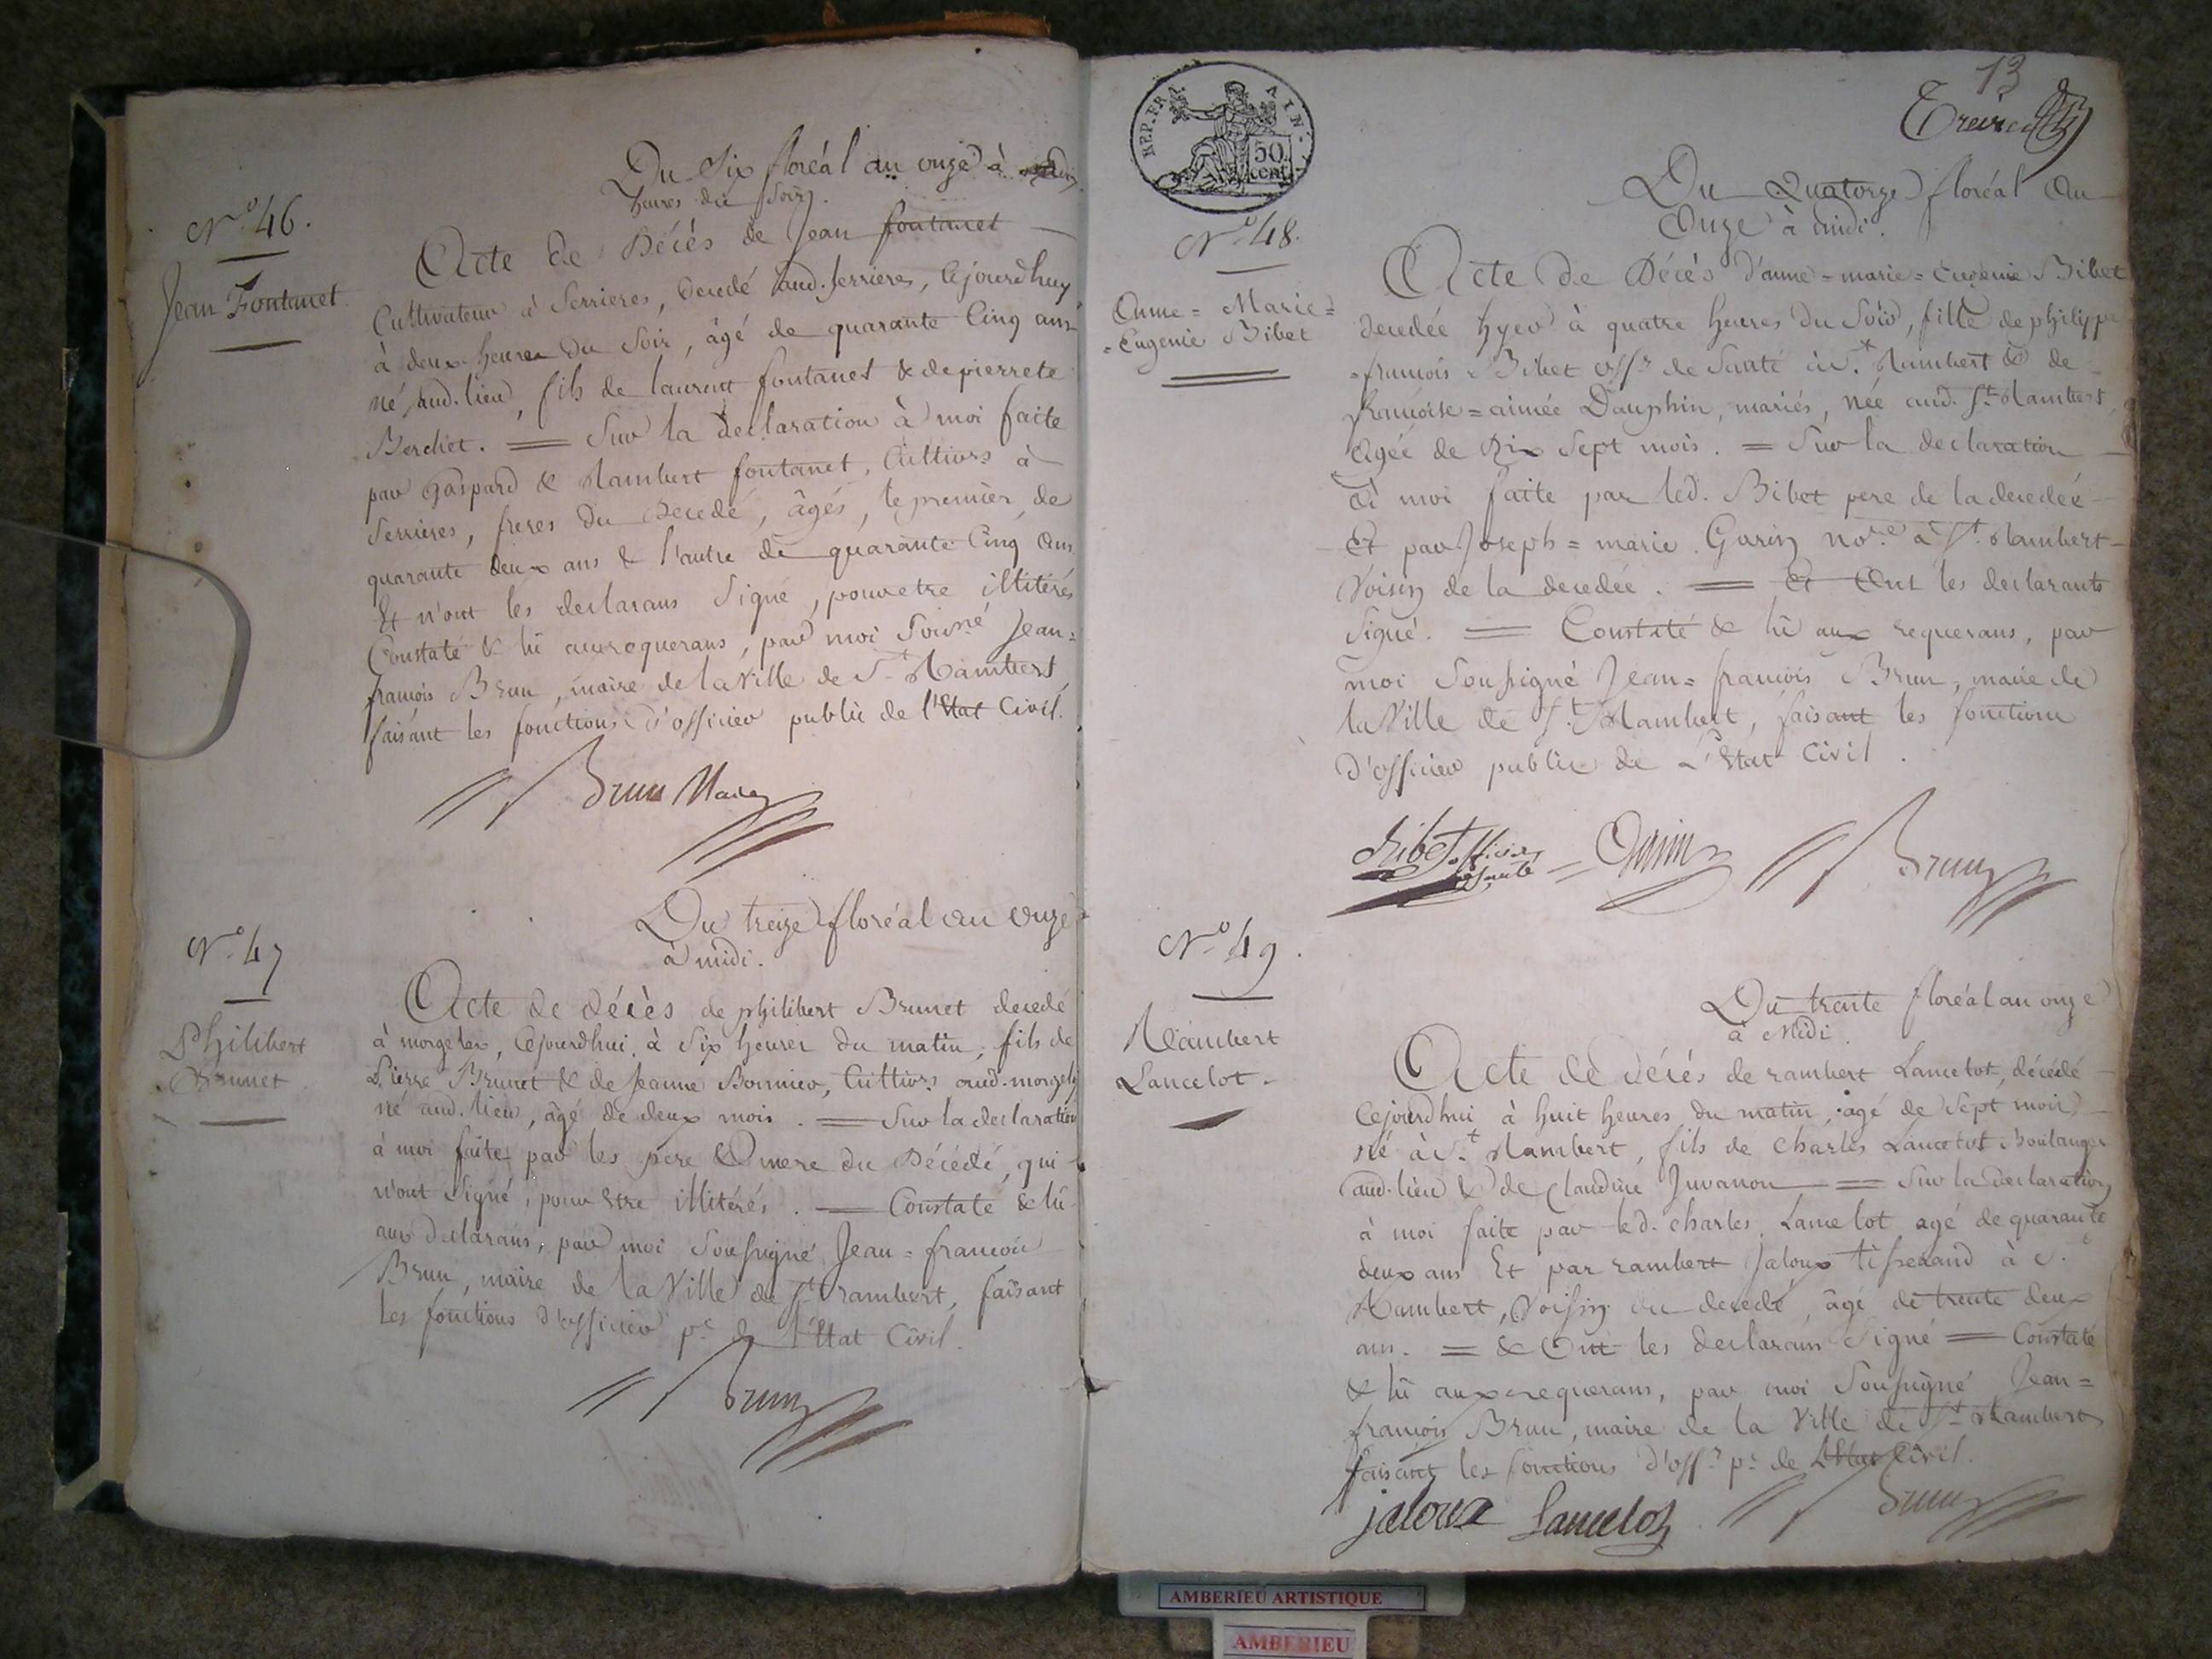 Du Six floréal an onze à
heures du Soir.
N.o 46.
Jean Fontanet
Acte de Décès de Jean fontanet
Cultivateur à Serrieres, decedé aud. Serrieres, cejourdhuy
à deux heures du Soir, âgé de quarante Cinq ans
né aud. lieu, fils de laurent fontanet & de pierrete
Berchet. = Sur la declaration à moi faite
par Gaspard & Rambert fontanet, Cultivrs à
Serrieres, freres du decedé, âgés, le premier, de
quarante deux ans & l'autre de quarante Cinq ans
Et n'ont les declarans Signé, pour etre illitérés
Constaté & lû aux requerans, par moi Sousné Jean=
françois Brun, maire de la Ville de St Rambert,
faisant les fonctions d'officier public de l'Etat Civil.
Brun Maire
Du treize floréal an onze
à midi.
N.o 47
Philibert
Brunet
Acte de décès de philibert Brunet decedé
à morgelas, Cejourdhui, à Six heures du matin, fils de
Pierre Brunet & de Jeanne Bonnier, Cultivrs aud.
né aud. lieu, âgé de deux mois. = Sur la declaration
à moi faite par les pere & mere du Décédé, qui
n'ont Signé, pour Etre illitérés. = Constaté & lû
aux declarans, par moi Soussigné Jean=françois
Brun, maire de la Ville de St rambert, faisant
les fonctions d'officier pc de l'Etat Civil.
Brun
REP. FRA. AIN.
50
cent
13
Du Quatorze floréal an
Onze à midi.
N.o 48.
Anne=Marie=
=Eugenie Bibet
Acte de Décès d'anne=marie=Eugenie Bibet
decedée hyer à quatre heures du Soir, fille de philippe
=françois Bibet offr de Santé à St Rambert & de
françoise=aimée Dauphin, mariés, née aud. St Rambert,
agée de Dix Sept mois. = Sur la declaration
à moi faite par led. Bibet pere de la decedée
Et par Joseph=marie Garin nore à St Rambert
Voisin de la decedée. = Et Ont les declarants
Signé. = Constaté & lû aux requerans, par
moi Soussigné Jean=françois Brun, maire de
la Ville de St Rambert, faisant les fonctions
d'officier public de L'Etat Civil.
Bibet officier
de Santé = Garin Brun
N.o 49.
Rambert
Lancelot.
Du trente floréal an onze
à Midi.
Acte de décés de rambert Lancelot, décédé
Cejourdhui à huit heures du matin, agé de Sept mois
né à St Rambert, fils de Charles Lancelot Boulanger
aud. lieu & de Claudine Juvanon = Sur la Declaration
à moi faite par led. charles Lancelot agé de quarante
deux ans Et par rambert Jaloux tisserand à St
Rambert, Voisin du decedé, âgé de trente deux
ans. = & Ont les declarans Signé = Constaté
& lû aux requerans, par moi Soussigné Jean=
françois Brun, maire de la Ville de St Rambert
faisant les fonctions d'offr pc de L'Etat Civil.
jaloux Lancelot Brun
AMBERIEU ARTISTIQUE
AMBERIEU